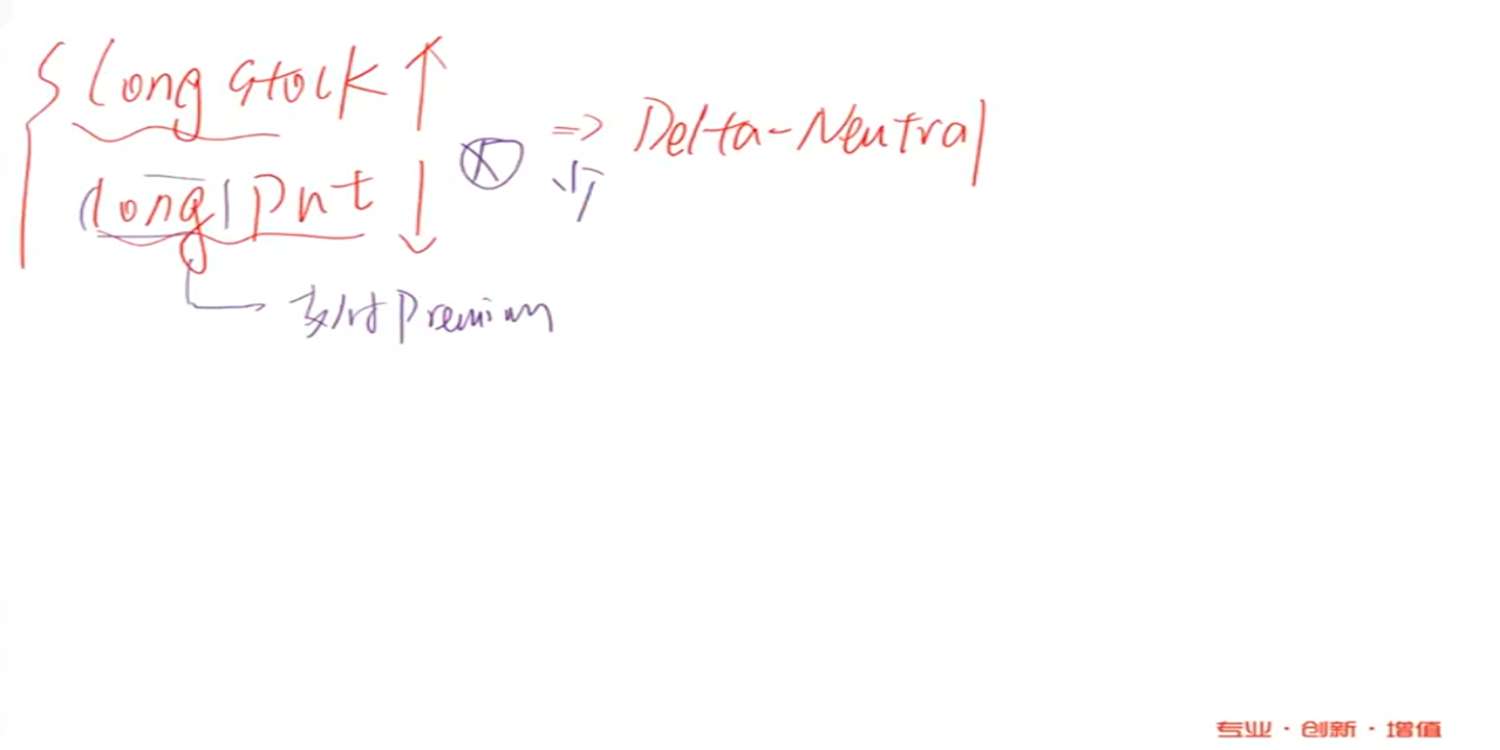 Long Stock ↑
Long Put ↓
⇒ Delta-Neutral
支付 Premium
专业·创新·增值